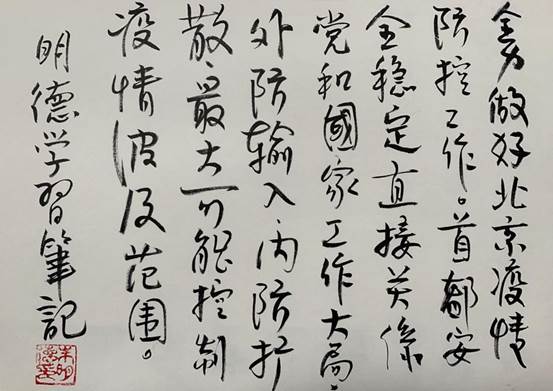 全力做好北京疫情
防控工作。首都安
全稳定直接关係
党和國家工作大局。
外防输入、内防扩
散、最大可能控制
疫情波及范围。
明德学習筆記